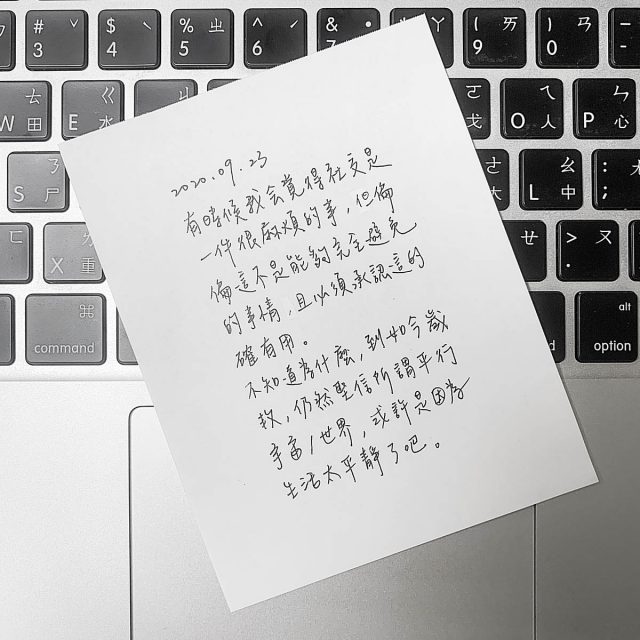 # 3 ˇ
$ 4 ˋ
% 5 ㄓ
^ 6 ˊ
& 7
ㄚ
( 9 ㄞ
) 0 ㄢ
W ㄊ 田
E ㄍ 水
O ㄟ 人
P ㄣ 心
S ㄋ 尸
L ㄠ 中
: ;
X ㄌ 重
> . ㄡ
command
alt
option
2020.09.23
有時候我会覺得社交是
一件很麻煩的事，但偏
偏這不是能夠完全避免
的事情，且必須承認這的
確有用。
不知道為什麼，到40今歲
数，仍然堅信所謂平行
宇宙/世界，或許是因為
生活太平靜了吧。